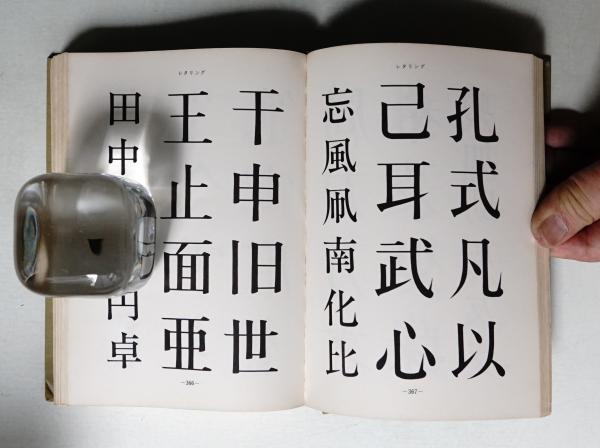 レタリング
干申旧世
王止面亜
田中円卓
—366—
レタリング
孔式凡以
己耳武心
忘風凧南化比
—367—